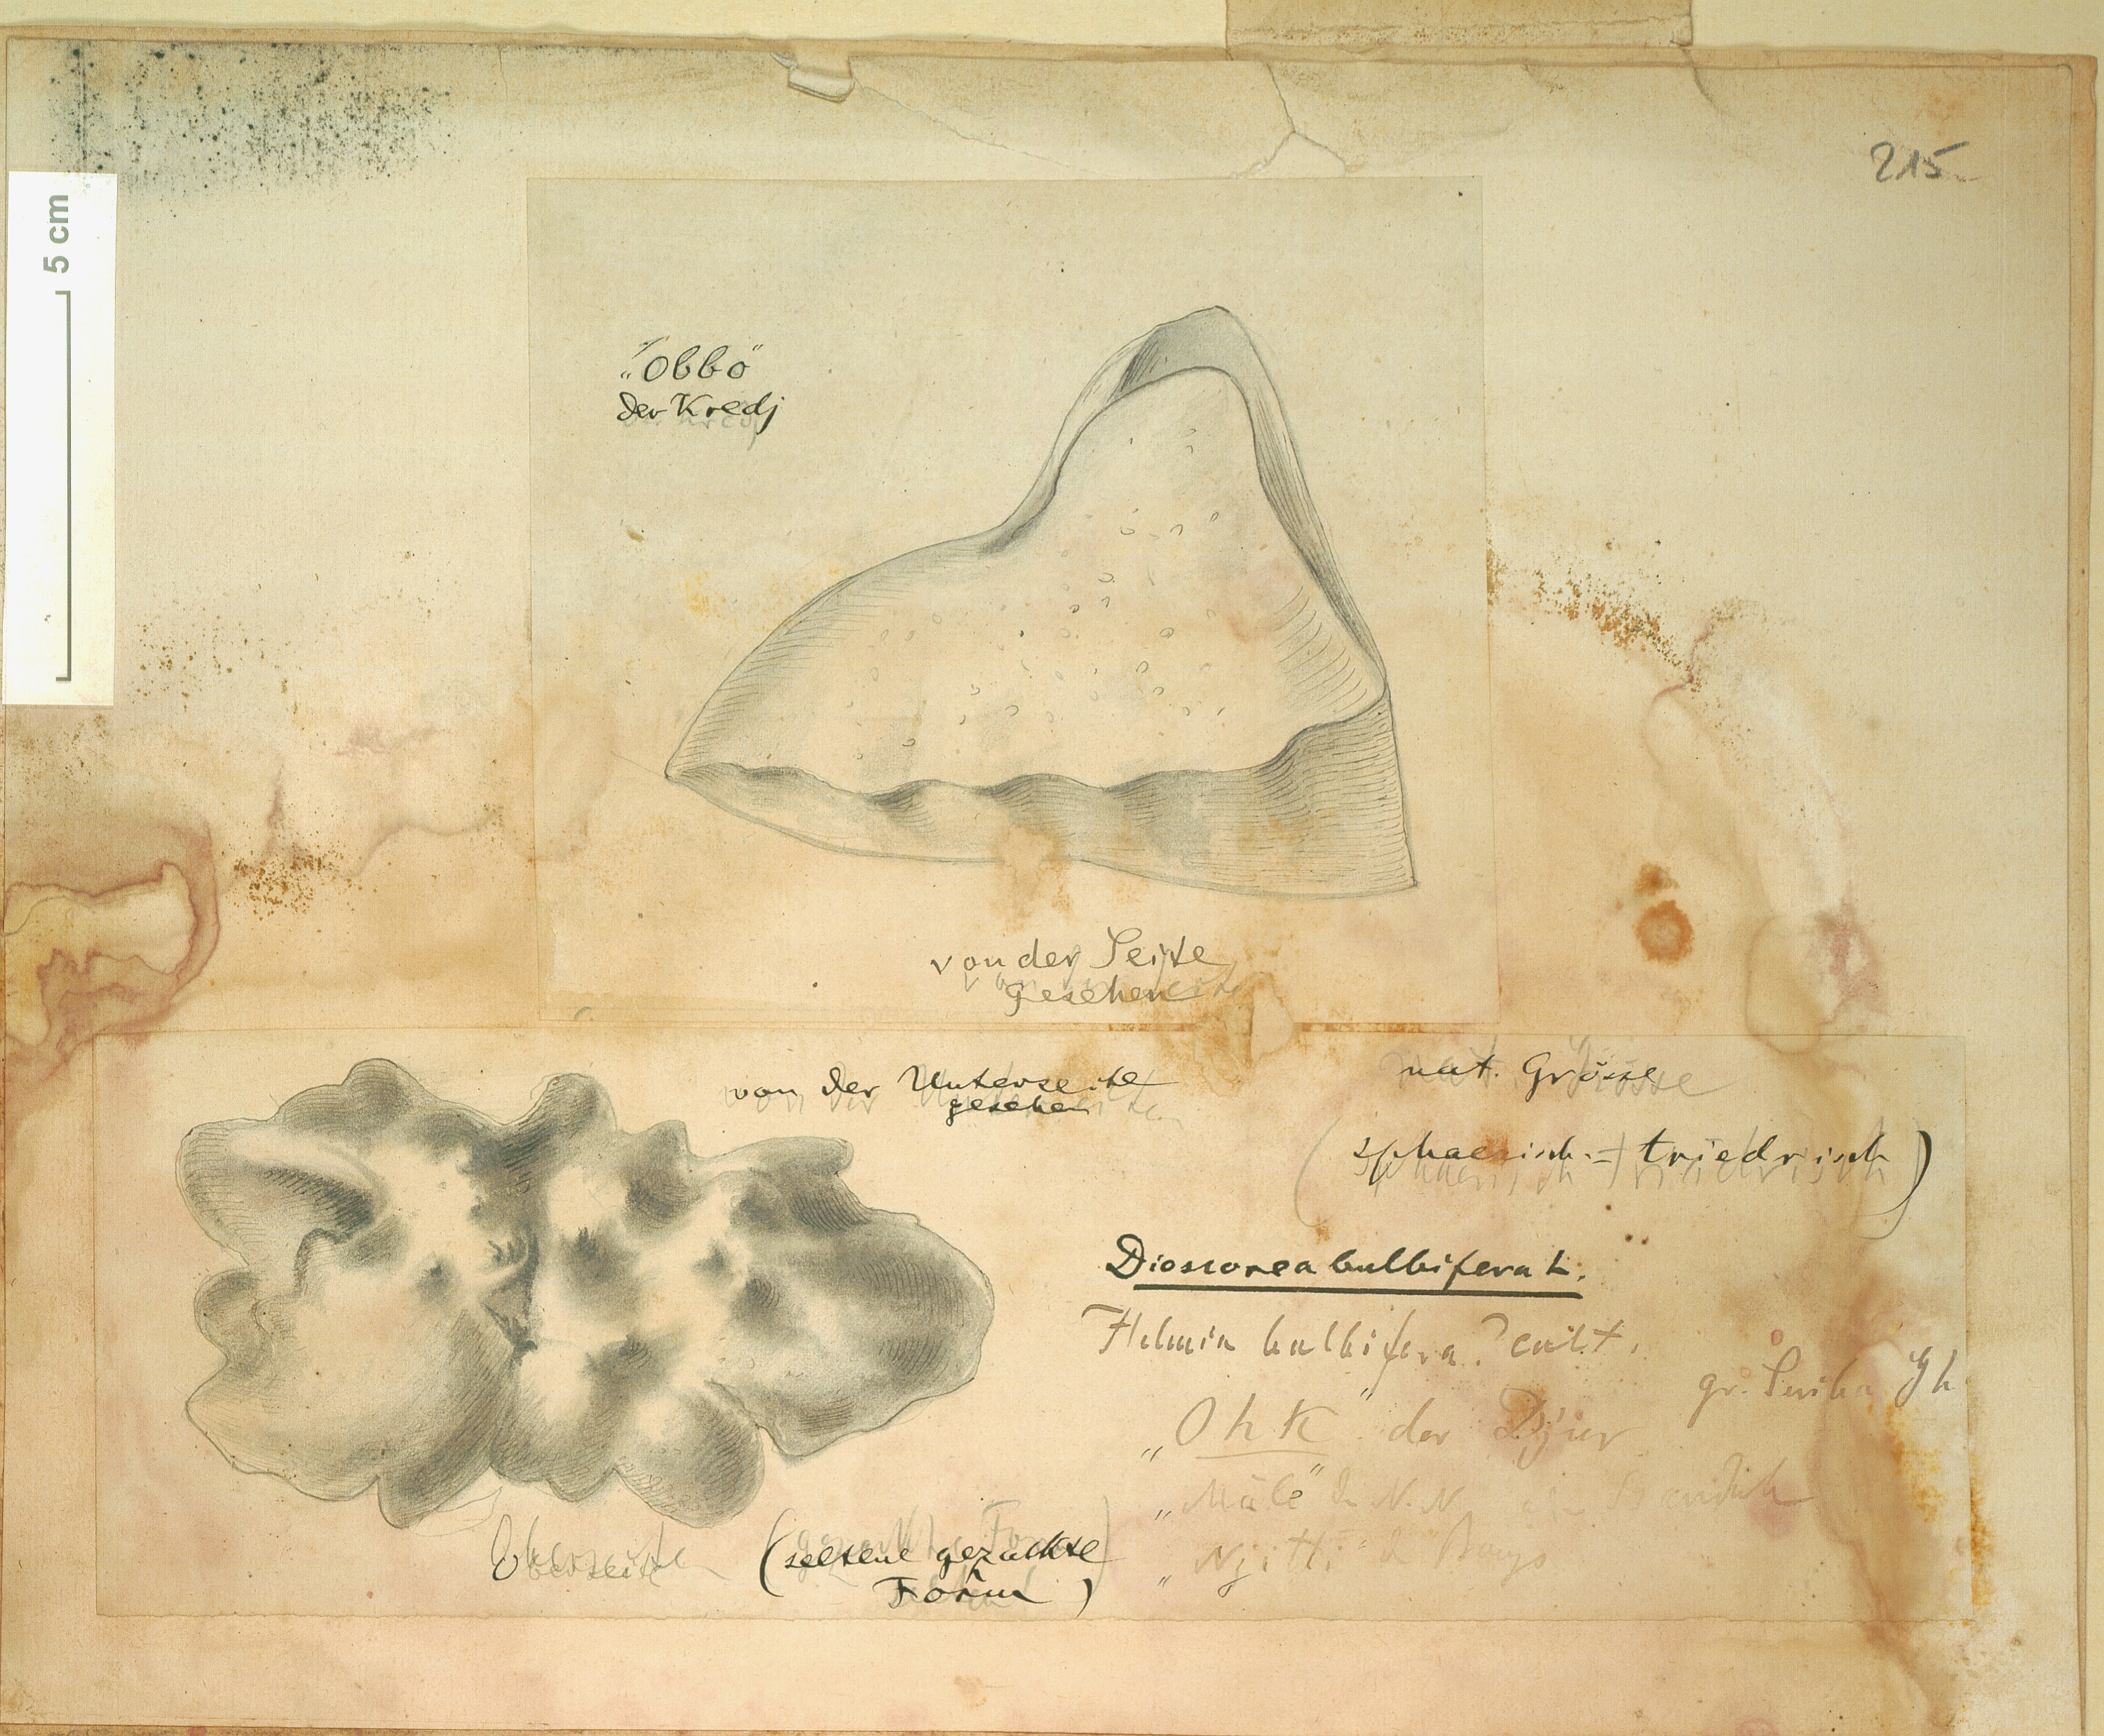 215
5 cm
„Obbo"
der Kredj
von der Seite
gesehen
von der Unterseite
gesehen
nat. Grösse
(sphaerisch-triedrisch)
Dioscorea bulbifera L.
Helmia bulbifera? cult.
gr. Seriba Gh
„Ohk" der Djur
„Mále" d. N. N.
Oberseite
(seltene gezackte
Form)